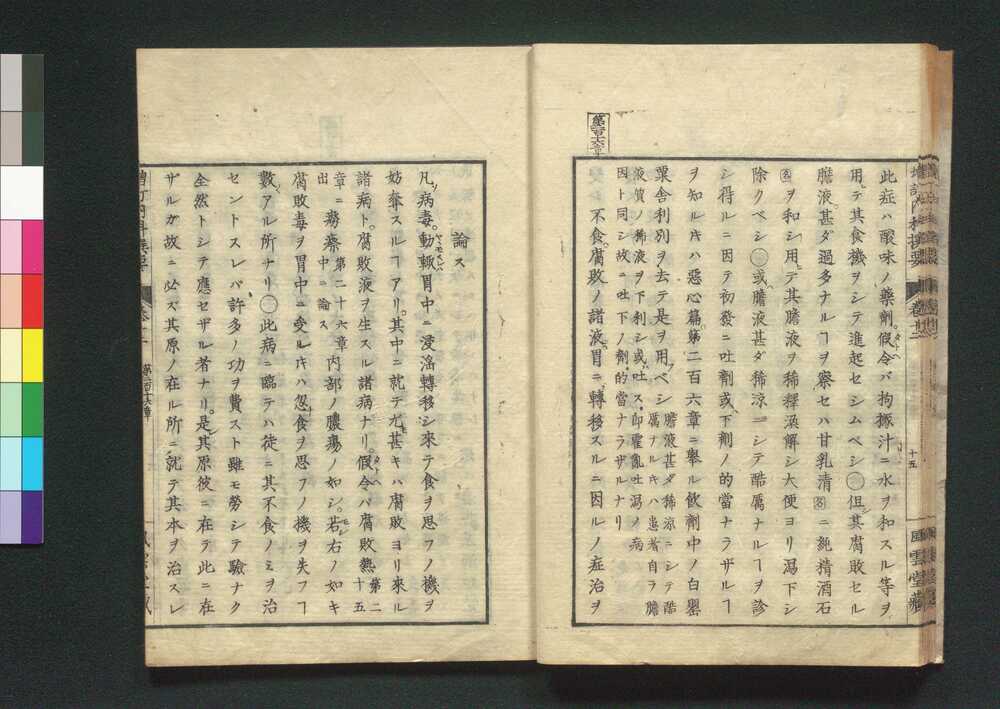 増訂内科撰要
巻十二
十五
風雲堂蔵
此症ハ酸味ノ藥劑。假令バ拘櫞汁ニ水ヲ和スル等ヲ
用テ其食機ヲシテ進起セシムベシ○但其腐敗セル
膽液。甚ダ過多ナルヿヲ察セハ甘乳清名ニ純精酒石
名ヲ和シ用テ其膽液ヲ稀釋渙解シ大便ヨリ瀉下シ
除クベシ○或膽液甚ダ稀涼ニシテ酷厲ナルヿヲ診
シ得ルニ因テ初發ニ吐劑或下劑ノ的當ナラザルヿ
ヲ知ルキハ惡心篇。第二百六章ニ擧ル飲劑中ノ白罌
粟舎利別ヲ去テ是ヲ用ベシ
膽液甚ダ稀涼ニシテ酷
厲ナルキハ患者自ラ膽
液質ノ稀液ヲ下利シ或吐ス。即霍亂吐瀉ノ病
因ト同シ故ニ吐下ノ劑。的當ナラザルナリ
第二百十六章
不食。腐敗ノ諸液。胃ニ轉移スルニ因ルノ症治ヲ
論ス
凡病毒。動輙胃中ニ浸滛轉移シ來テ食ヲ思フノ機ヲ
妨奪スルヿアリ。其中ニ就テ尤甚キハ腐敗ヨリ來ル
諸病ト。腐敗液ヲ生スル諸病ナリ。假令バ腐敗熱
第二
十五
章ニ
出
勞瘵
第二十六章内部ノ膿瘍ノ如シ。若右ノ如キ
中ニ論ス
腐敗毒ヲ胃中ニ受ルキハ忽食ヲ思フノ機ヲ失フヿ
數アル所ナリ○此病ニ臨テハ徒ニ其不食ノミヲ治
セントスレバ許多ノ功ヲ費スト雖モ勞シテ驗ナク
全然トシテ應セザル者ナリ。是其原彼ニ在テ此ニ在
ザルガ故ニ必ス其原ノ在ル所ニ就テ其本ヲ治スレ